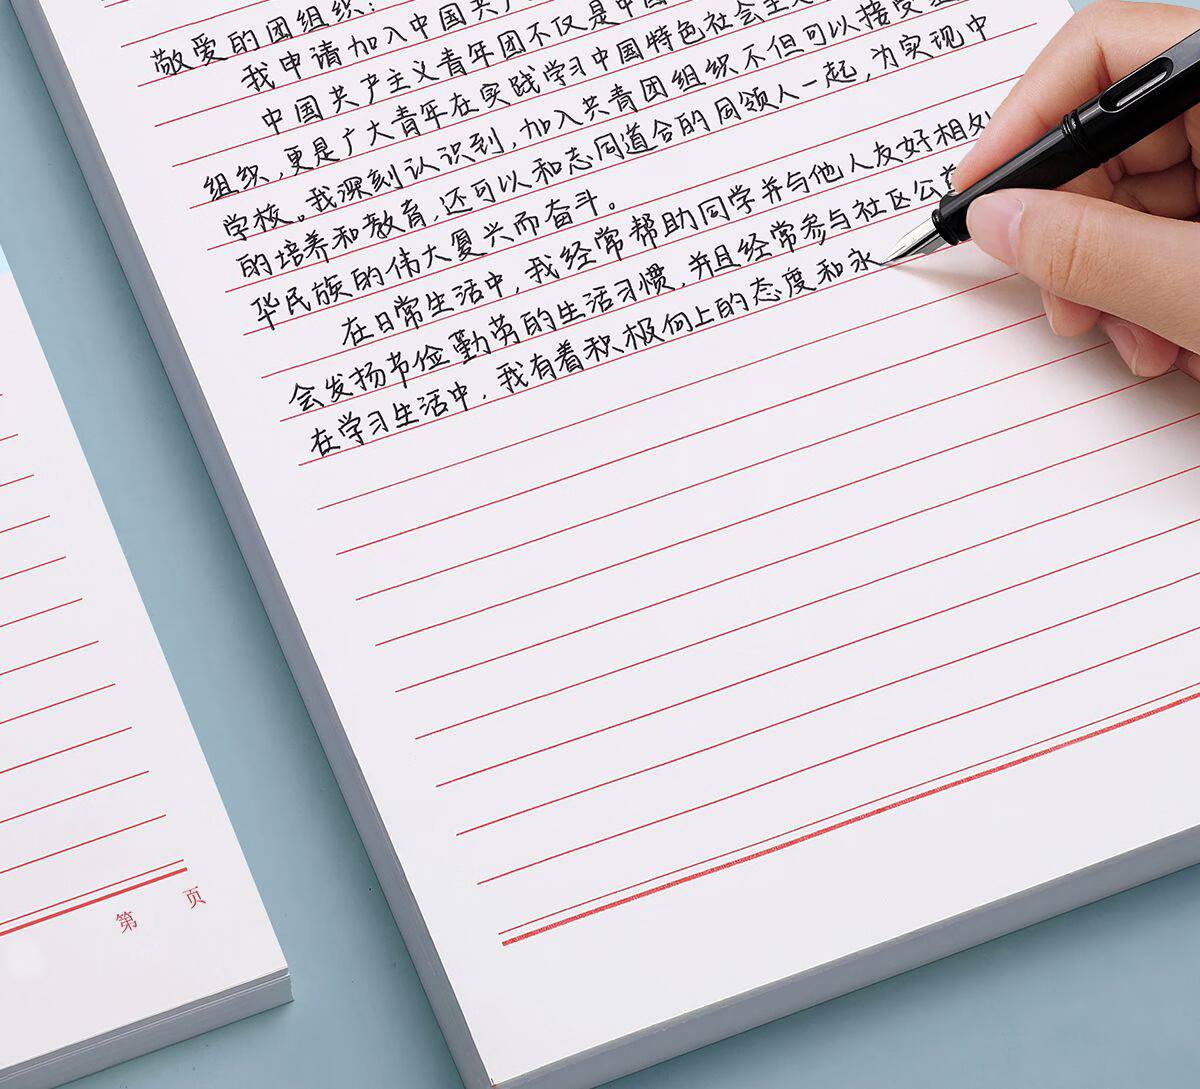 敬爱的团组织：
我申请加入中国共产
中国共产主义青年团不仅是中国
组织，更是广大青年在实践学习中国特色社会主义
学校。我深刻认识到，加入共青团组织不但可以接受
的培养和教育，还可以和志同道合的同领人一起，为实现中
华民族的伟大复兴而奋斗。
在日常生活中，我经常帮助同学并与他人友好相处
会发扬节俭勤劳的生活习惯，并且经常参与社区公
在学习生活中，我有着积极向上的态度和永
第 页